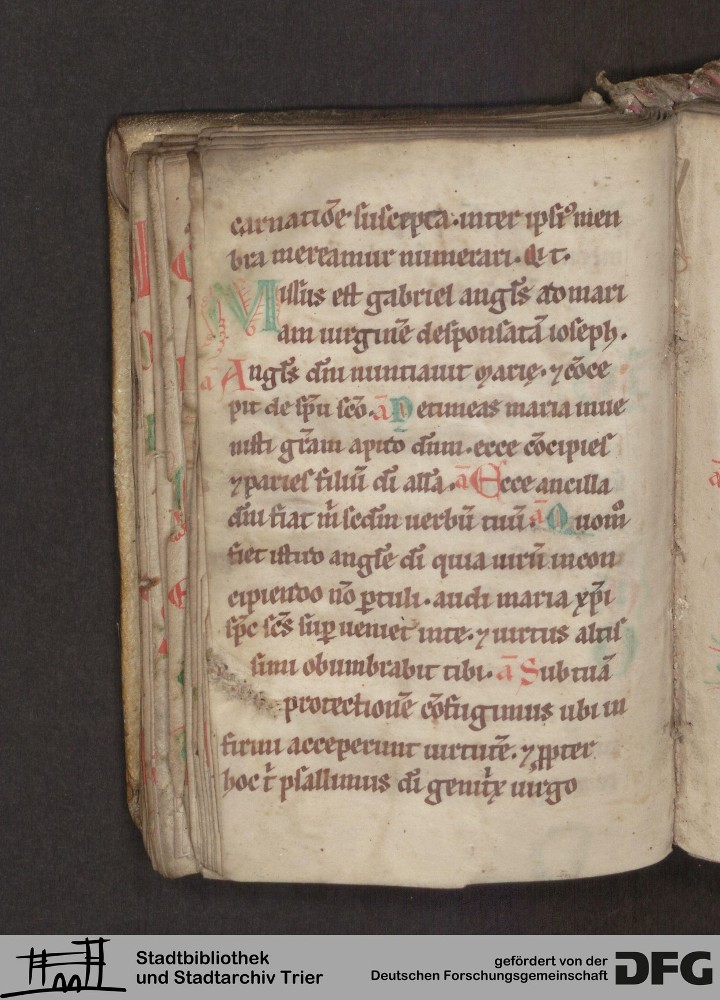 carnatiōe suscepta. inter ipsiꝰ men
bra mereamur numerari.
Missus est gabriel angl̄s ad mari
am uirginē desponsatā ioseph.
ā Angl̄s dn̄i nuntiauit marię. ⁊ cōce
pit de sp̄u sc̄o. ā Ne timeas maria inue
nisti gr̄am aput dn̄m. ecce cōcipies
⁊ paries filiū di all̄a. ā Ecce ancilla
dn̄i fiat m̄ sedm̄ uerbū tuū. ā Quom̊
fiet istud angl̄e di quia uirū in con
cipiendo nō ꝑtuli. audi maria xp̄i
sp̄c sc̄s suꝑueniet in te. ⁊ uirtus altis
simi obumbrabit tibi. ā Sub tuā
protectionē cōfugimus ubi in
firmi acceperunt uirtutē. ⁊ ꝓpter
hoc t̄ psallimus di genitͥx uirgo
Stadtbibliothek
und Stadtarchiv Trier
gefördert von der
Deutschen Forschungsgemeinschaft
DFG